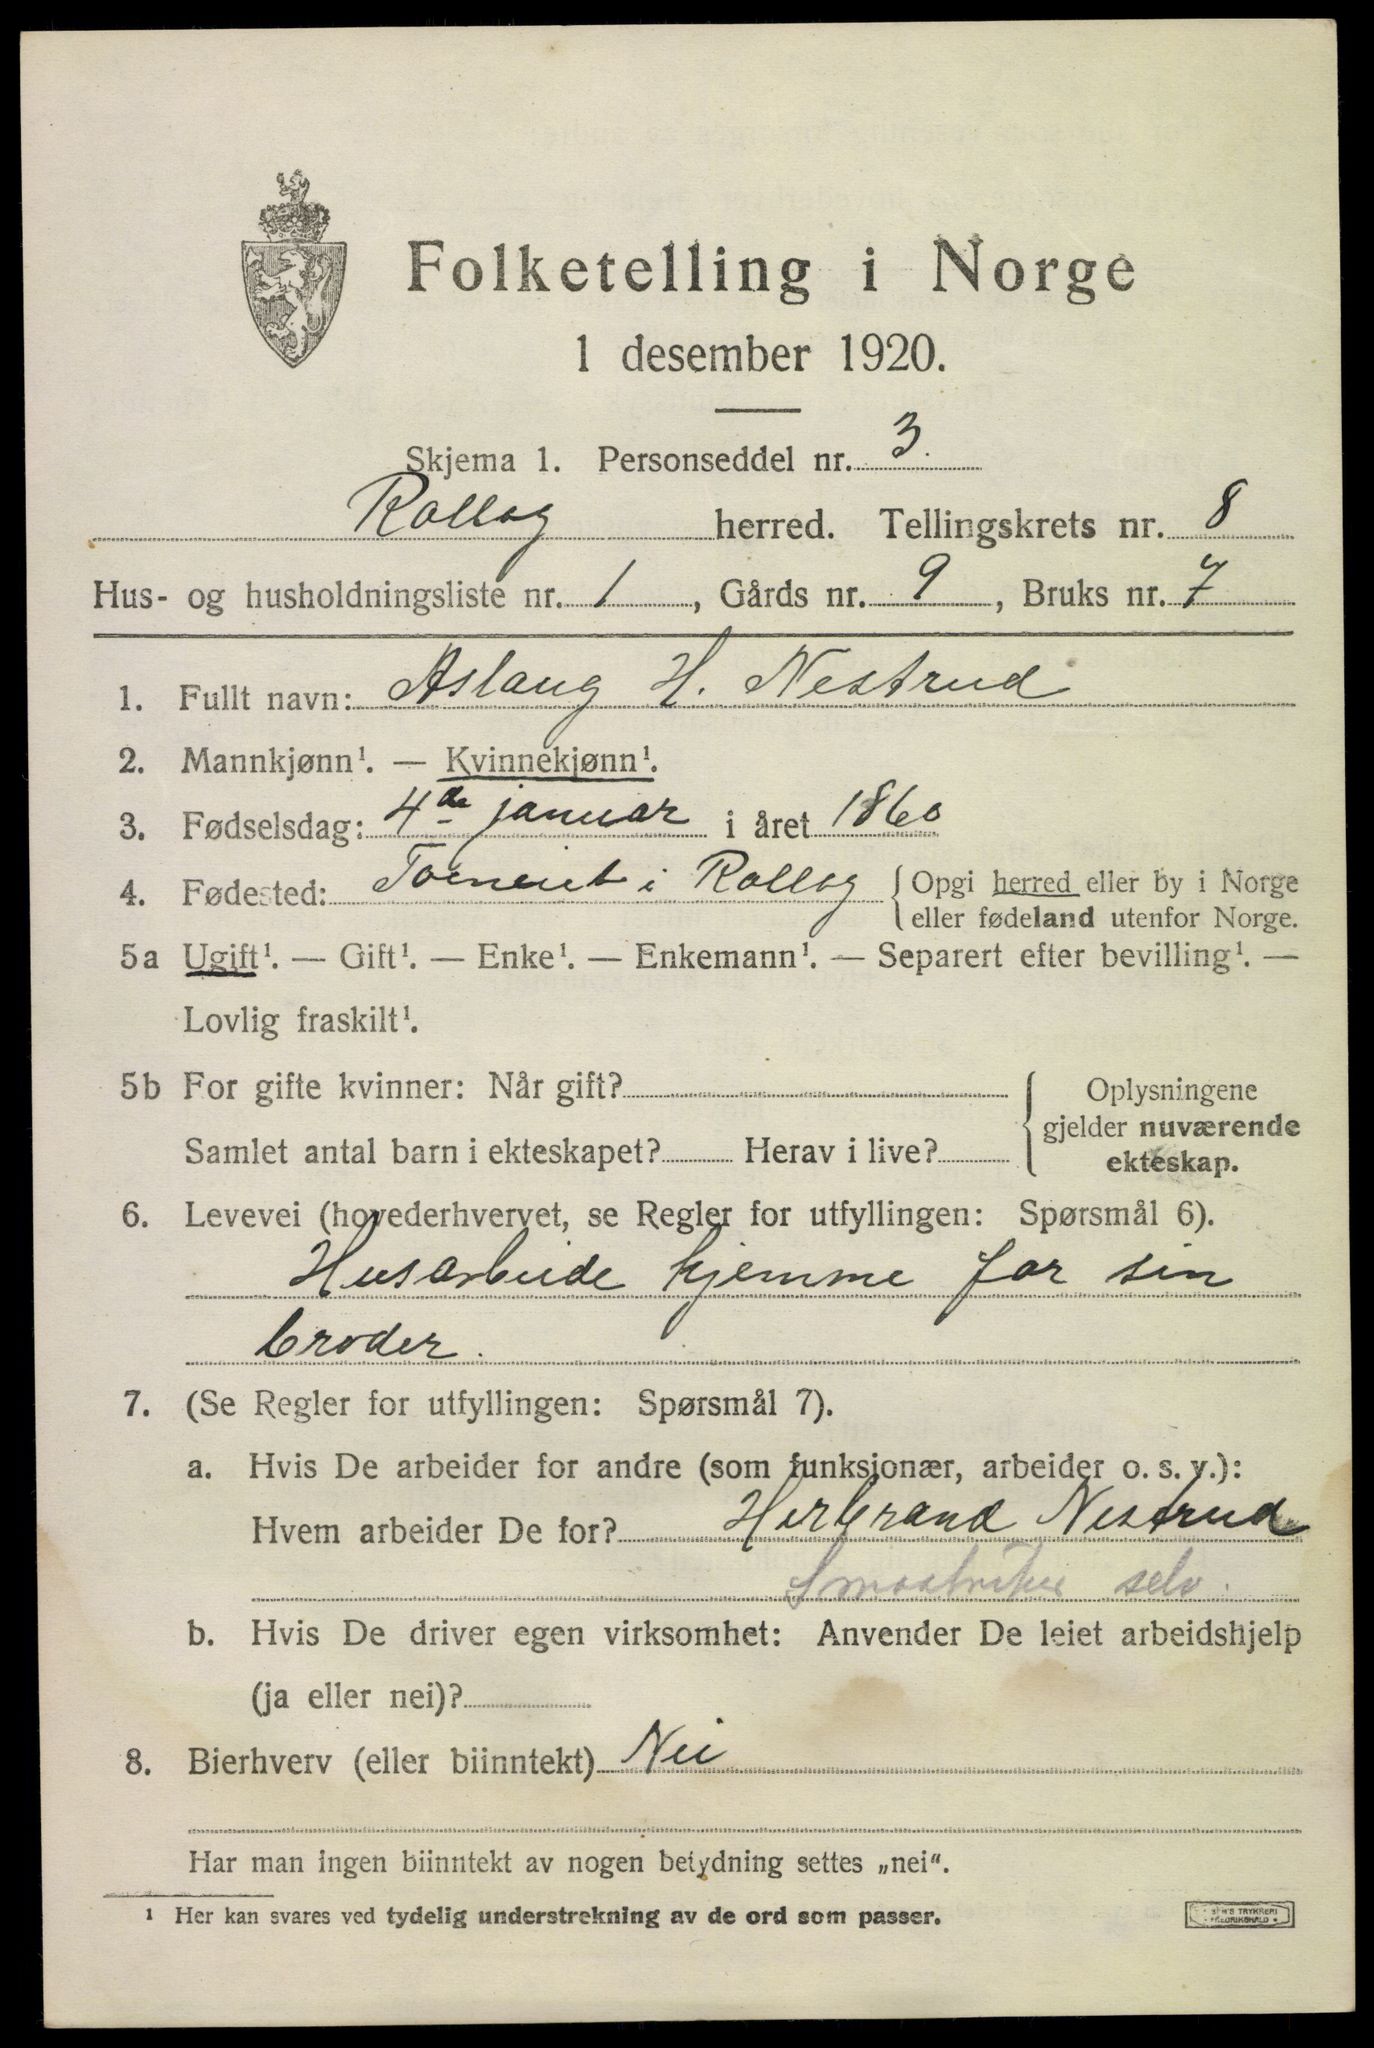 Folketelling i Norge
1 desember 1920.
Skjema 1. Personseddel nr. 3.
Rollag herred. Tellingskrets nr. 8
Hus- og husholdningsliste nr. 1, Gårds nr. 9, Bruks nr. 7
1. Fullt navn: Aslaug H. Nestrud
2. Mannkjønn¹. — Kvinnekjønn¹.
3. Fødselsdag: 4de januar i året 1860
4. Fødested: i Rollag { Opgi herred eller by i Norge
eller fødeland utenfor Norge.
5a Ugift¹. — Gift¹. — Enke¹. — Enkemann¹. — Separert efter bevilling¹. —
Lovlig fraskilt¹.
5b For gifte kvinner: Når gift? { Oplysningene
gjelder nuværende
Samlet antal barn i ekteskapet? Herav i live?
ekteskap.
6. Levevei (hovederhvervet, se Regler for utfyllingen: Spørsmål 6).
Husarbeide hjemme for sin
broder.
7. (Se Regler for utfyllingen: Spørsmål 7).
a. Hvis De arbeider for andre (som funksjonær, arbeider o. s. v.):
Hvem arbeider De for? Herbrand Nestrud
Smaabruker selv.
b. Hvis De driver egen virksomhet: Anvender De leiet arbeidshjelp
(ja eller nei)?
8. Bierhverv (eller biinntekt) Nei
Har man ingen biinntekt av nogen betydning settes „nei“.
¹ Her kan svares ved tydelig understrekning av de ord som passer.
TRYKKERI
FREDRIKSHALD